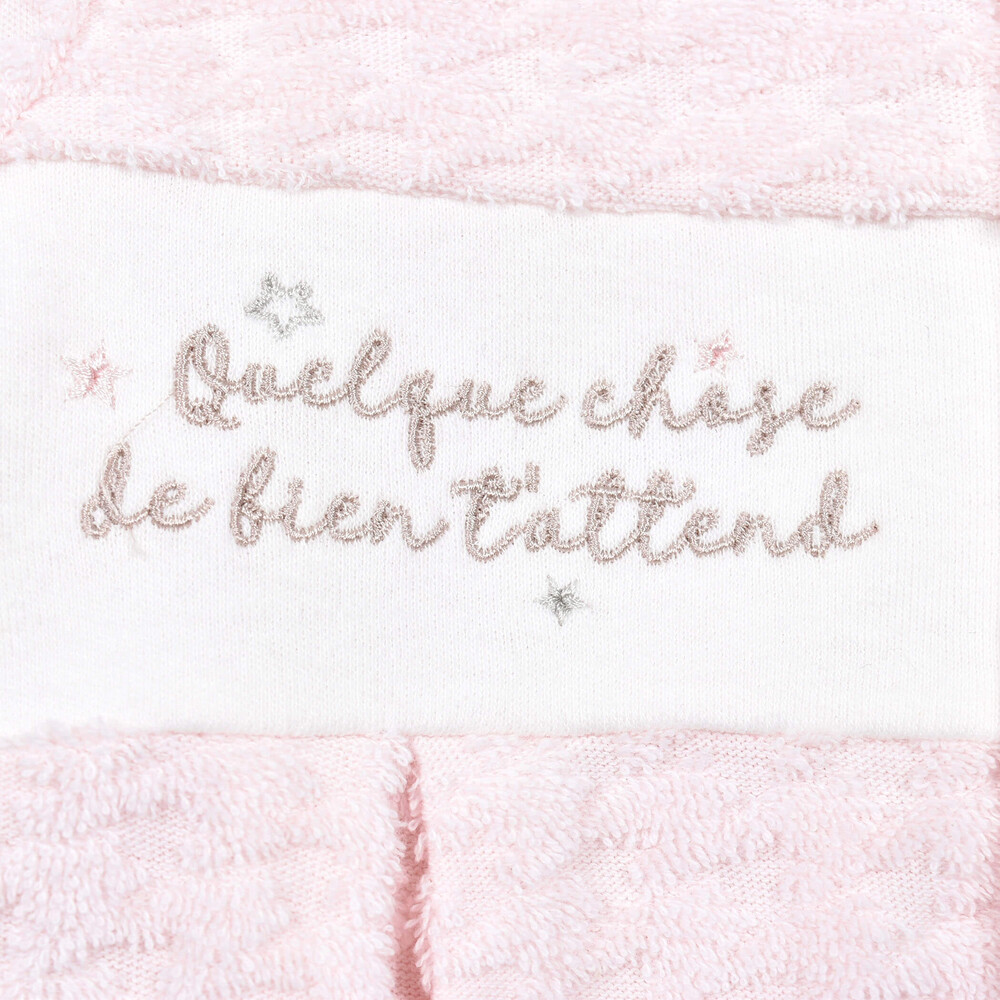 Quelque chose
de bien t'attend